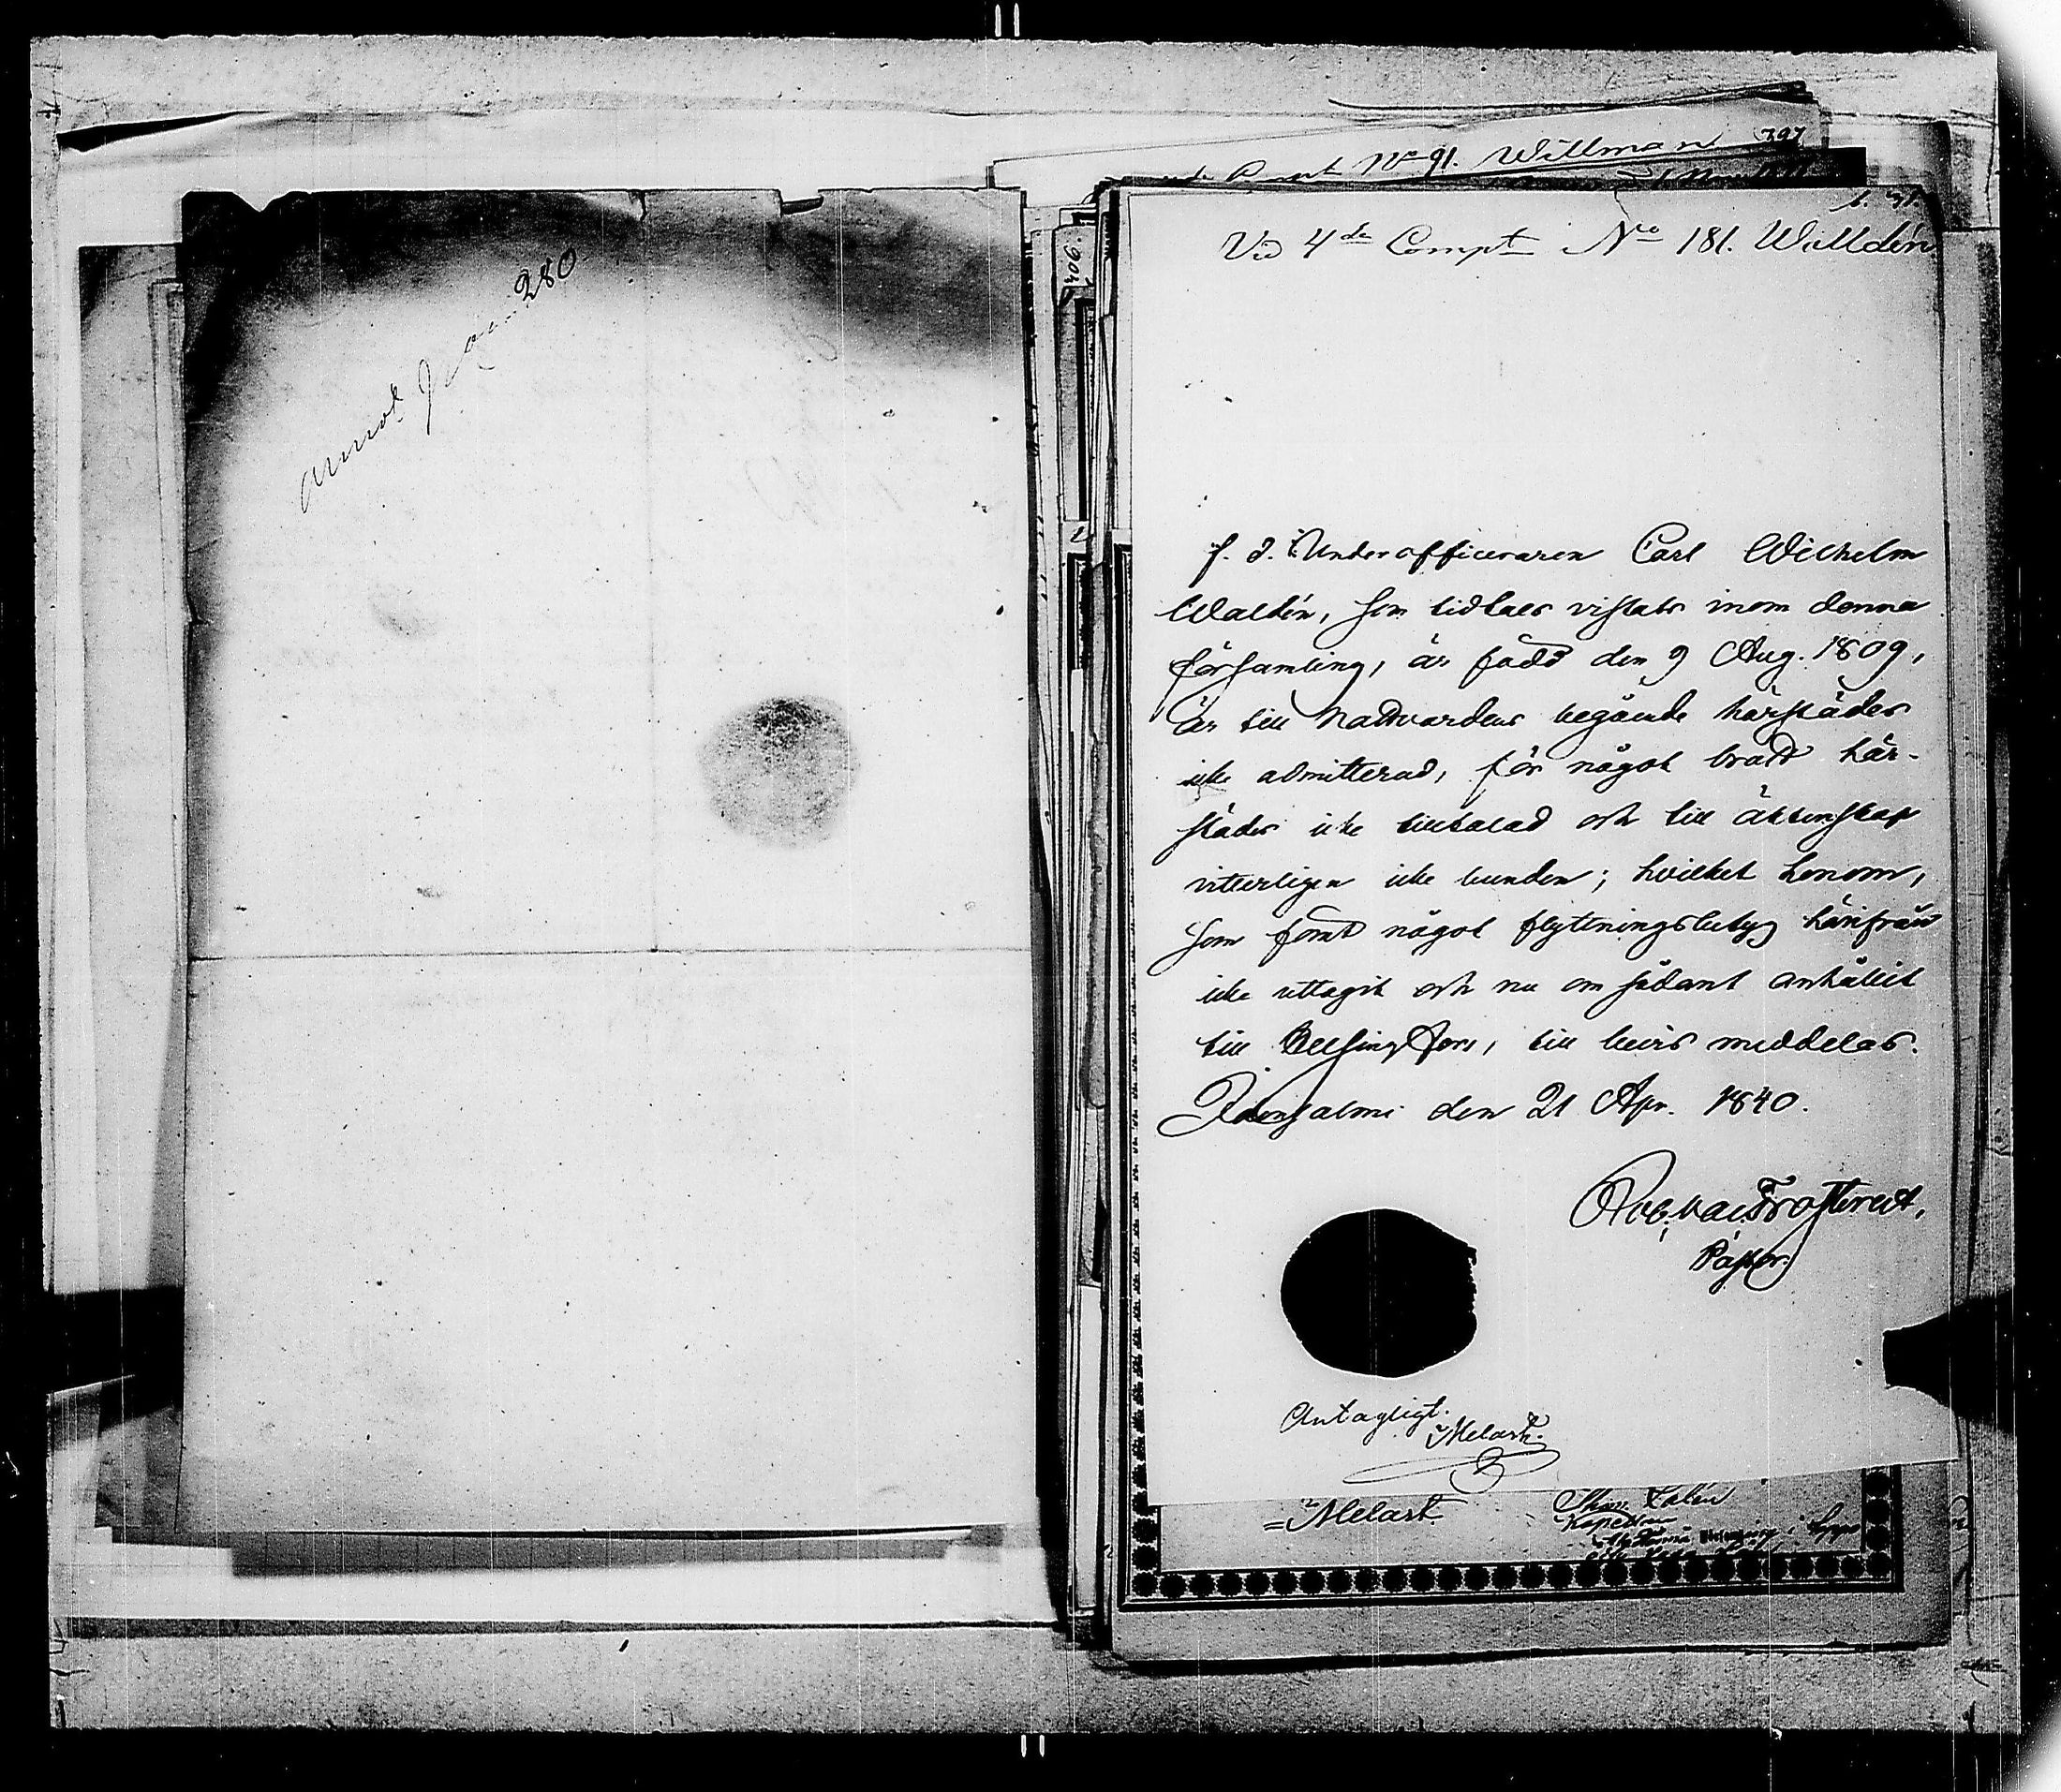 280
annot
397
No 91. Willman
Vid 4de Compt No 181. Walldén
f. d. Underofficeraren Carl Wilhelm
Waldén, som tidtals vistats inom denna
församling, är född den 9 Aug. 1809,
är till Nattvardens begående härstädes
icke admitterad, för något brott här-
städes icke tilltalad och till äktenskap
vitterligen icke bunden; hvilket honom,
som förut något flyttningsbetyg härifrån
icke uttagit och nu om sådant anhållit
till Helsingfors, till bevis meddelas.
Idensalmi den 21 Apr. 1840.
Pastor.
Antagligt.
Melart.
Melart.
Kapellan